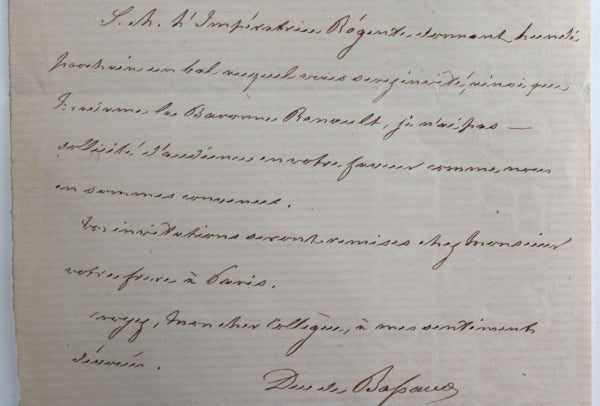 S. M. L'Impératrice Régente, donnant lundi
prochain un bal auquel vous serez invité, ainsi que
Madame la Baronne Renault, je n'ai pas —
sollicité d'audience en votre faveur comme nous
en sommes convenus.
Vos invitations seront remises chez Monsieur
votre frere à Paris.
Croyez, Mon cher Collègue, à mes sentiments
dévoués.
Duc de Bassano